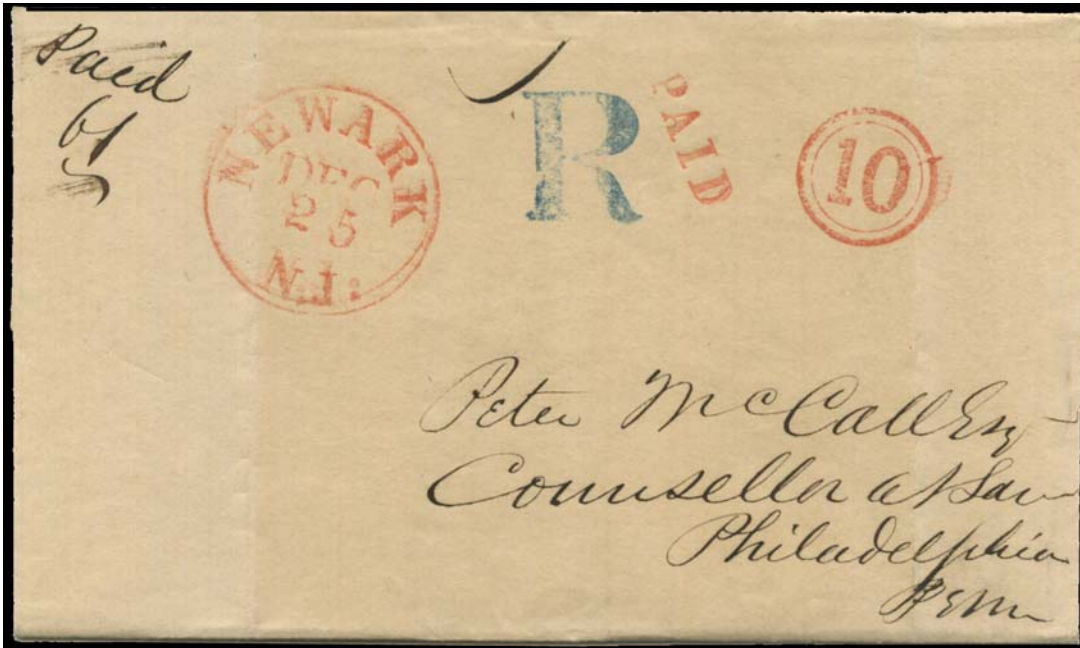 Paid
61
NEWARK
DEC
25
N.J:
R
PAID
10
Peter McCall Esq
Counsellor at Law
Philadelphia
Penn